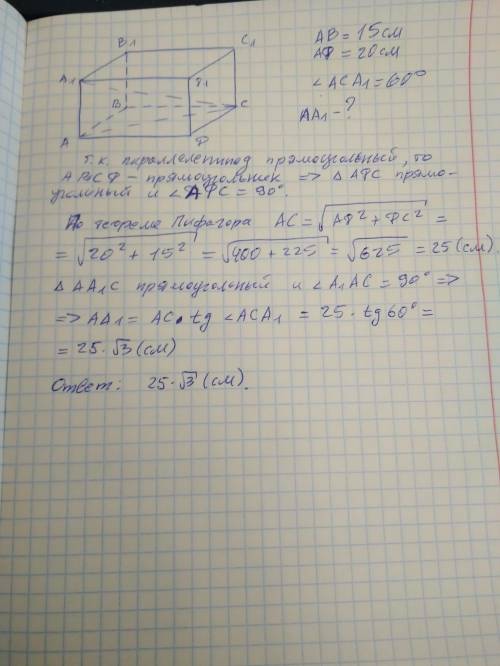 B1
C1
A1
Ф1
B
C
A
Ф
AB = 15см
AФ = 20см
∠ACA1 = 60°
AA1 - ?
Т.к. параллелепипед прямоугольный, то
ABCФ - прямоугольник => △AФC прямо-
угольный и ∠AФC = 90°.
По теореме Пифагора AC = √AФ² + ФC² =
= √20² + 15² = √400 + 225 = √625 = 25 (см).
△AA1C прямоугольный и ∠A1AC = 90° =>
=> AA1 = AC • tg ∠ACA1 = 25 · tg 60° =
= 25 · √3 (см)
Ответ: 25 · √3 (см).